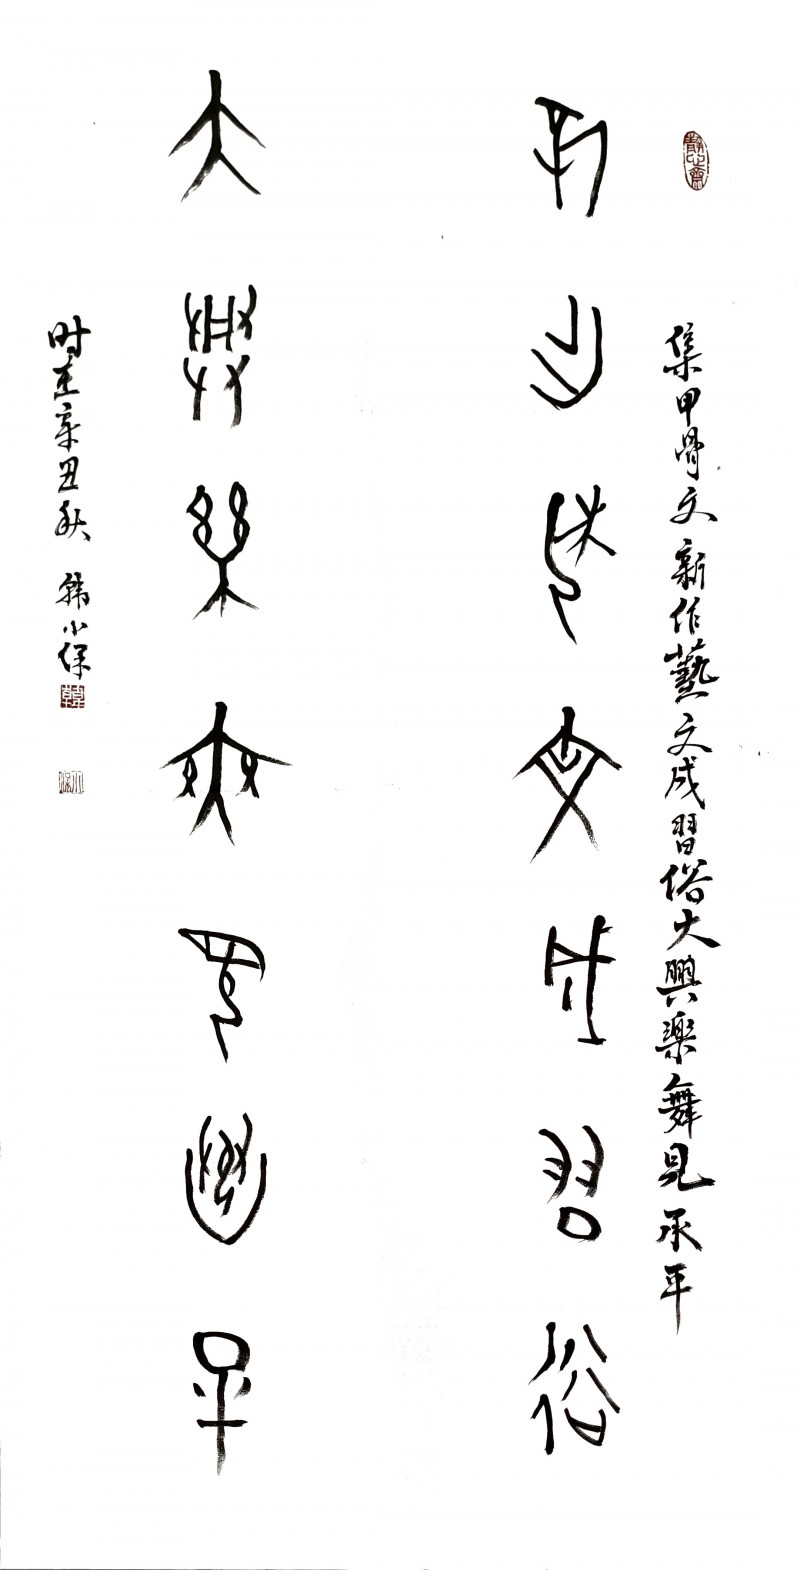 集甲骨文 新作藝文成習俗大興樂舞見承平
新作藝文成習俗
大興樂舞見承平
时在辛丑秋 韩小保